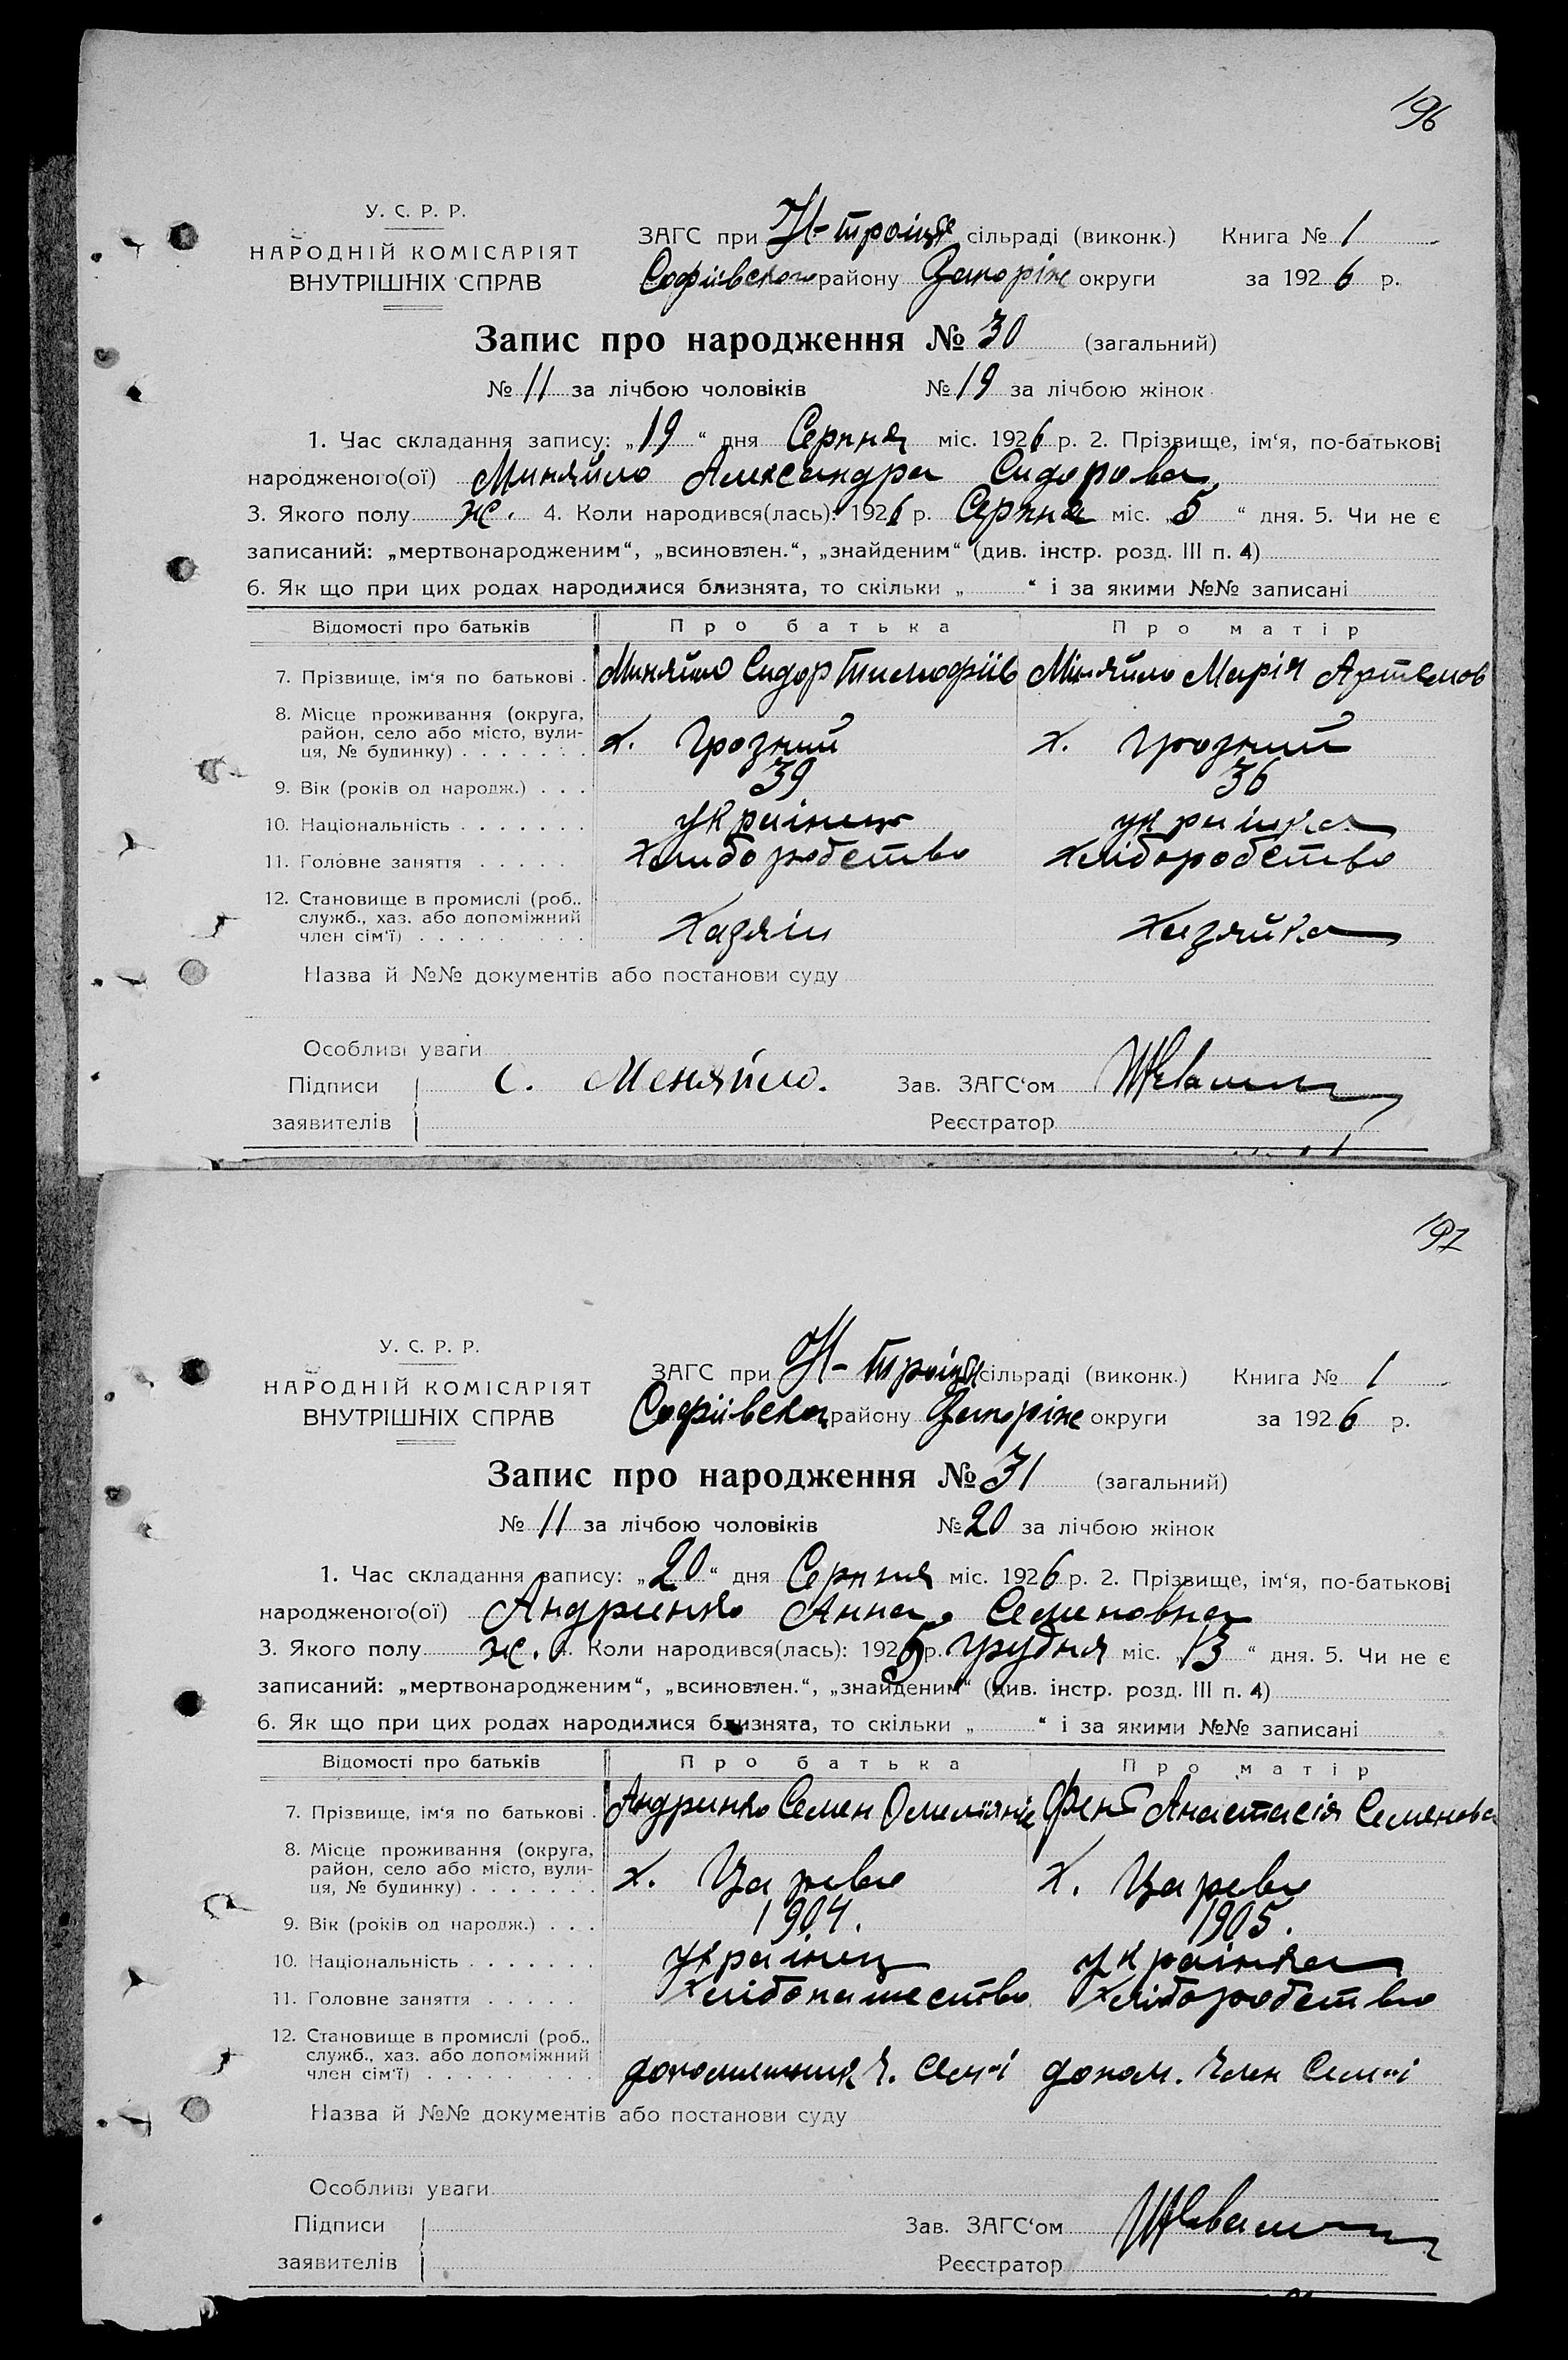 196
У. С. Р. Р.
НАРОДНІЙ КОМІСАРІЯТ
ВНУТРІШНІХ СПРАВ
ЗАГС при Н-троіцк сільраді (виконк.) Книга № 1
Софіівського району Запоріж округи за 1926 р.
Запис про народження № 30 (загальний)
№ 11 за лічбою чоловіків № 19 за лічбою жінок
1. Час складання запису: „19“ дня Серпня міс. 1926 р. 2. Прізвище, ім‘я, по-батькові
народженого(ої) Миняйло Александра Сидорова
3. Якого полу ж. 4. Коли народився(лась): 1926 р. Серпня міс. „5“ дня. 5. Чи не є
записаний: „мертвонародженим“, „всиновлен.“, „знайденим“ (див. інстр. розд. III п. 4)
6. Як що при цих родах народилися близнята, то скільки „ “ і за якими №№ записані
Відомості про батьків Про батька Про матір
7. Прізвище, ім‘я по батькові . Миняйло Сидор Тимофіїв Міняйло Марія Артемов
8. Місце проживання (округа,
район, село або місто, вули-
ця, № будинку) . . . . . . . х. Грозний х. Грозний
9. Вік (років од народж.) . . . 39 36
10. Національність . . . . . . . украінец украінка
11. Головне заняття . . . . . Хлиборобство Хліборобство
12. Становище в промислі (роб.,
служб., хаз. або допоміжний
член сім‘ї) . . . . . . . . . Хазяін Хазяйка
Назва й №№ документів або постанови суду
Особливі уваги
Підписи С. Меняйло. Зав. ЗАГС‘ом
заявителів Реєстратор
197
У. С. Р. Р.
НАРОДНІЙ КОМІСАРІЯТ
ВНУТРІШНІХ СПРАВ
ЗАГС при Н-троіцк сільраді (виконк.) Книга № 1
Софіівська району Запоріж округи за 1926 р.
Запис про народження № 31 (загальний)
№ 11 за лічбою чоловіків № 20 за лічбою жінок
1. Час складання запису: „20“ дня Серпня міс. 1926 р. 2. Прізвище, ім‘я, по-батькові
народженого(ої) Андриенко Анна Семеновна
3. Якого полу ж. 4. Коли народився(лась): 1925 р. грудня міс. „13“ дня. 5. Чи не є
записаний: „мертвонародженим“, „всиновлен.“, „знайденим“ (див. інстр. розд. III п. 4)
6. Як що при цих родах народилися близнята, то скільки „ “ і за якими №№ записані
Відомості про батьків Про батька Про матір
7. Прізвище, ім‘я по батькові . Андриенко Семен Анастасія Семенова
8. Місце проживання (округа,
район, село або місто, вули-
ця, № будинку) . . . . . . . х. х.
9. Вік (років од народж.) . . . 1904. 1905.
10. Національність . . . . . . . Украінец украінка
11. Головне заняття . . . . . Хлібопашество Хліборобство
12. Становище в промислі (роб.,
служб., хаз. або допоміжний
член сім‘ї) . . . . . . . . . ч. Сем‘і допом. член Сем‘і
Назва й №№ документів або постанови суду
Особливі уваги
Підписи Зав. ЗАГС‘ом
заявителів Реєстратор